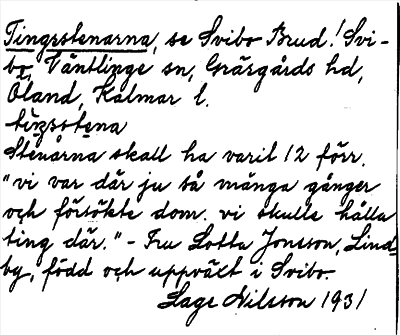 Tingsstenarna, se Svibo Brud! Svi-
bo, Väntlinge sn, Gräsgårds hd,
Öland, Kalmar l.
tiŋsstena
Stenarna skall ha varit 12 förr.
"vi var där ju så många gånger
och försökte dom. vi skulle hålla
ting där." - Fru Lotta Jonsson, Lind-
by, född och uppväxt i Svibo
Lage Nilsson 1931